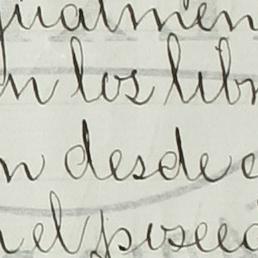 gualmen
n los libr
n desde e
el posee